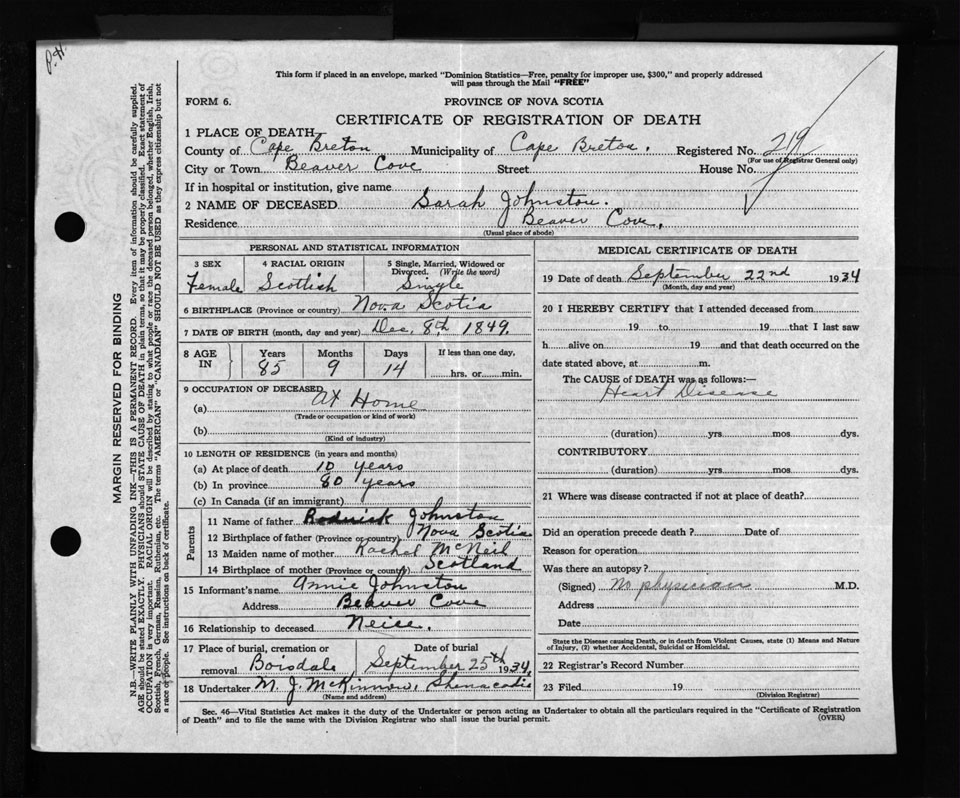 P.H.
This form if placed in an envelope, marked "Dominion Statistics—Free, penalty for improper use, $300," and properly addressed
will pass through the Mail "FREE"
FORM 6.
PROVINCE OF NOVA SCOTIA
CERTIFICATE OF REGISTRATION OF DEATH
1 PLACE OF DEATH
County of Cape Breton Municipality of Cape Breton. Registered No. 219
(For use of Registrar General only)
City or Town Beaver Cove Street House No.
If in hospital or institution, give name
2 NAME OF DECEASED Sarah Johnston.
Residence Beaver Cove,
(Usual place of abode)
PERSONAL AND STATISTICAL INFORMATION
3 SEX 4 RACIAL ORIGIN 5 Single, Married, Widowed or
Divorced. (Write the word)
Female Scottish Single
6 BIRTHPLACE (Province or country) Nova Scotia
7 DATE OF BIRTH (month, day and year) Dec. 8th 1849.
8 AGE IN Years Months Days If less than one day,
85 9 14 hrs. or min.
9 OCCUPATION OF DECEASED
(a) At Home
(Trade or occupation or kind of work)
(b)
(Kind of industry)
10 LENGTH OF RESIDENCE (in years and months)
(a) At place of death 10 years
(b) In province 80 years
(c) In Canada (if an immigrant)
Parents
11 Name of father Roderick Johnston
12 Birthplace of father (Province or country) Nova Scotia
13 Maiden name of mother Rachel McNeil
14 Birthplace of mother (Province or country) Scotland
15 Informant's name Annie Johnston
Address Beaver Cove
16 Relationship to deceased Neice.
17 Place of burial, cremation or Date of burial
removal Boisdale, September 25th 1934.
18 Undertaker M. J. McKinnon, Shenacadie
(Name and address)
MEDICAL CERTIFICATE OF DEATH
19 Date of death September 22nd 1934
(Month, day and year)
20 I HEREBY CERTIFY that I attended deceased from
19 to 19 that I last saw
h alive on 19 and that death occurred on the
date stated above, at m.
The CAUSE of DEATH was as follows:—
Heart Disease
(duration) yrs. mos. dys.
CONTRIBUTORY
(duration) yrs. mos. dys.
21 Where was disease contracted if not at place of death?
Did an operation precede death? Date of
Reason for operation
Was there an autopsy?
(Signed) No physician M.D.
Address
Date
State the Disease causing Death, or in death from Violent Causes, state (1) Means and Nature
of Injury, (2) whether Accidental, Suicidal or Homicidal.
22 Registrar's Record Number
23 Filed 19
(Division Registrar)
Sec. 46—Vital Statistics Act makes it the duty of the Undertaker or person acting as Undertaker to obtain all the particulars required in the "Certificate of Registration
of Death" and to file the same with the Division Registrar who shall issue the burial permit. (OVER)
MARGIN RESERVED FOR BINDING
N.B.—WRITE PLAINLY WITH UNFADING INK—THIS IS A PERMANENT RECORD. Every item of information should be carefully supplied.
AGE should be stated EXACTLY. PHYSICIANS should STATE CAUSE OF DEATH in plain terms, so that it may be properly classified. Exact statement of
OCCUPATION is very important. RACIAL ORIGIN will be described by stating to what people or race the deceased person belonged, whether English, Irish,
Scottish, French, German, Russian, Ruthenian, etc. The terms "AMERICAN" or "CANADIAN" SHOULD NOT BE USED as they express citizenship but not
a race or people. See instructions on back of certificate.